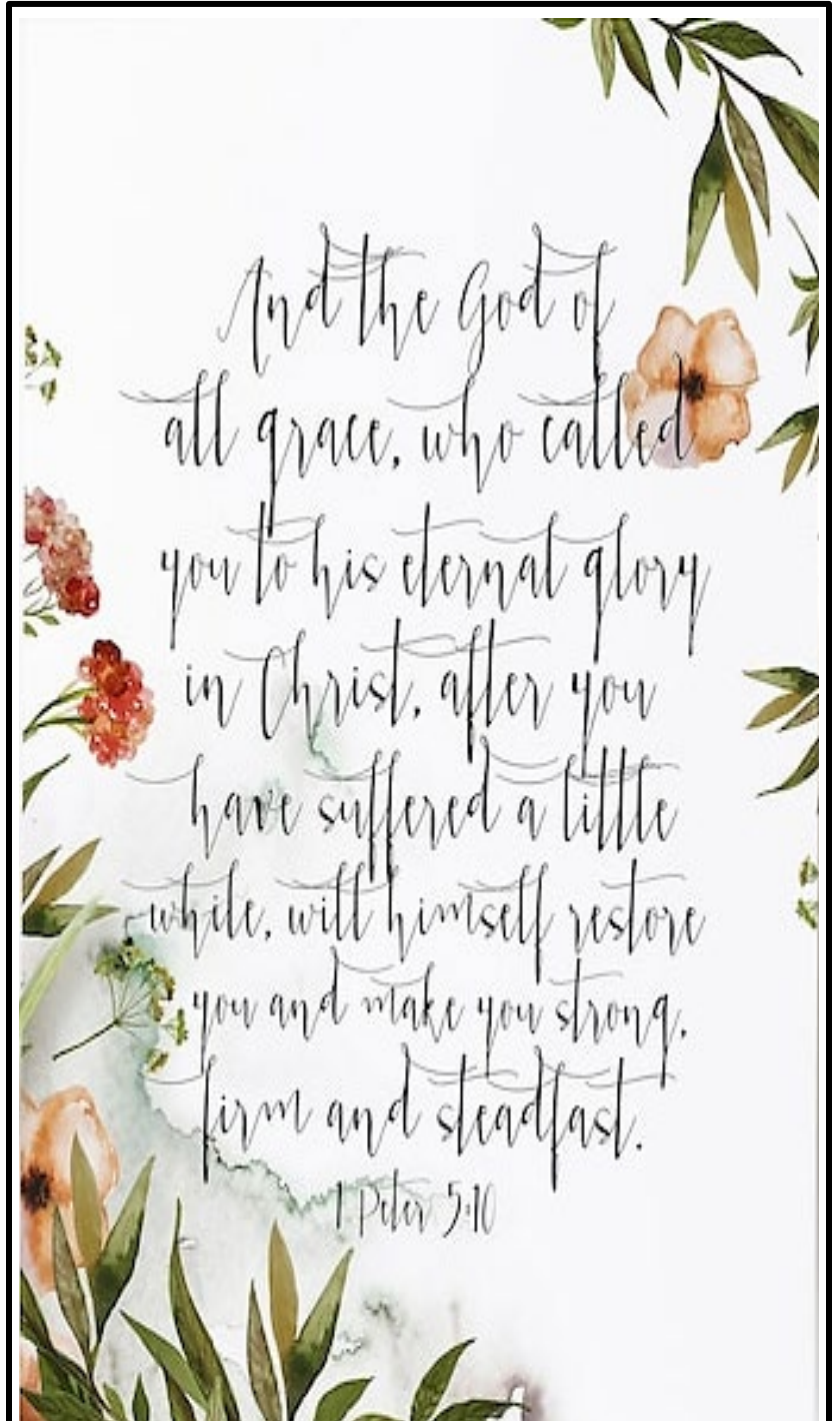 And the God of
all grace, who called
you to his eternal glory
in Christ, after you
have suffered a little
while, will himself restore
you and make you strong,
firm and steadfast.
1 Peter 5:10